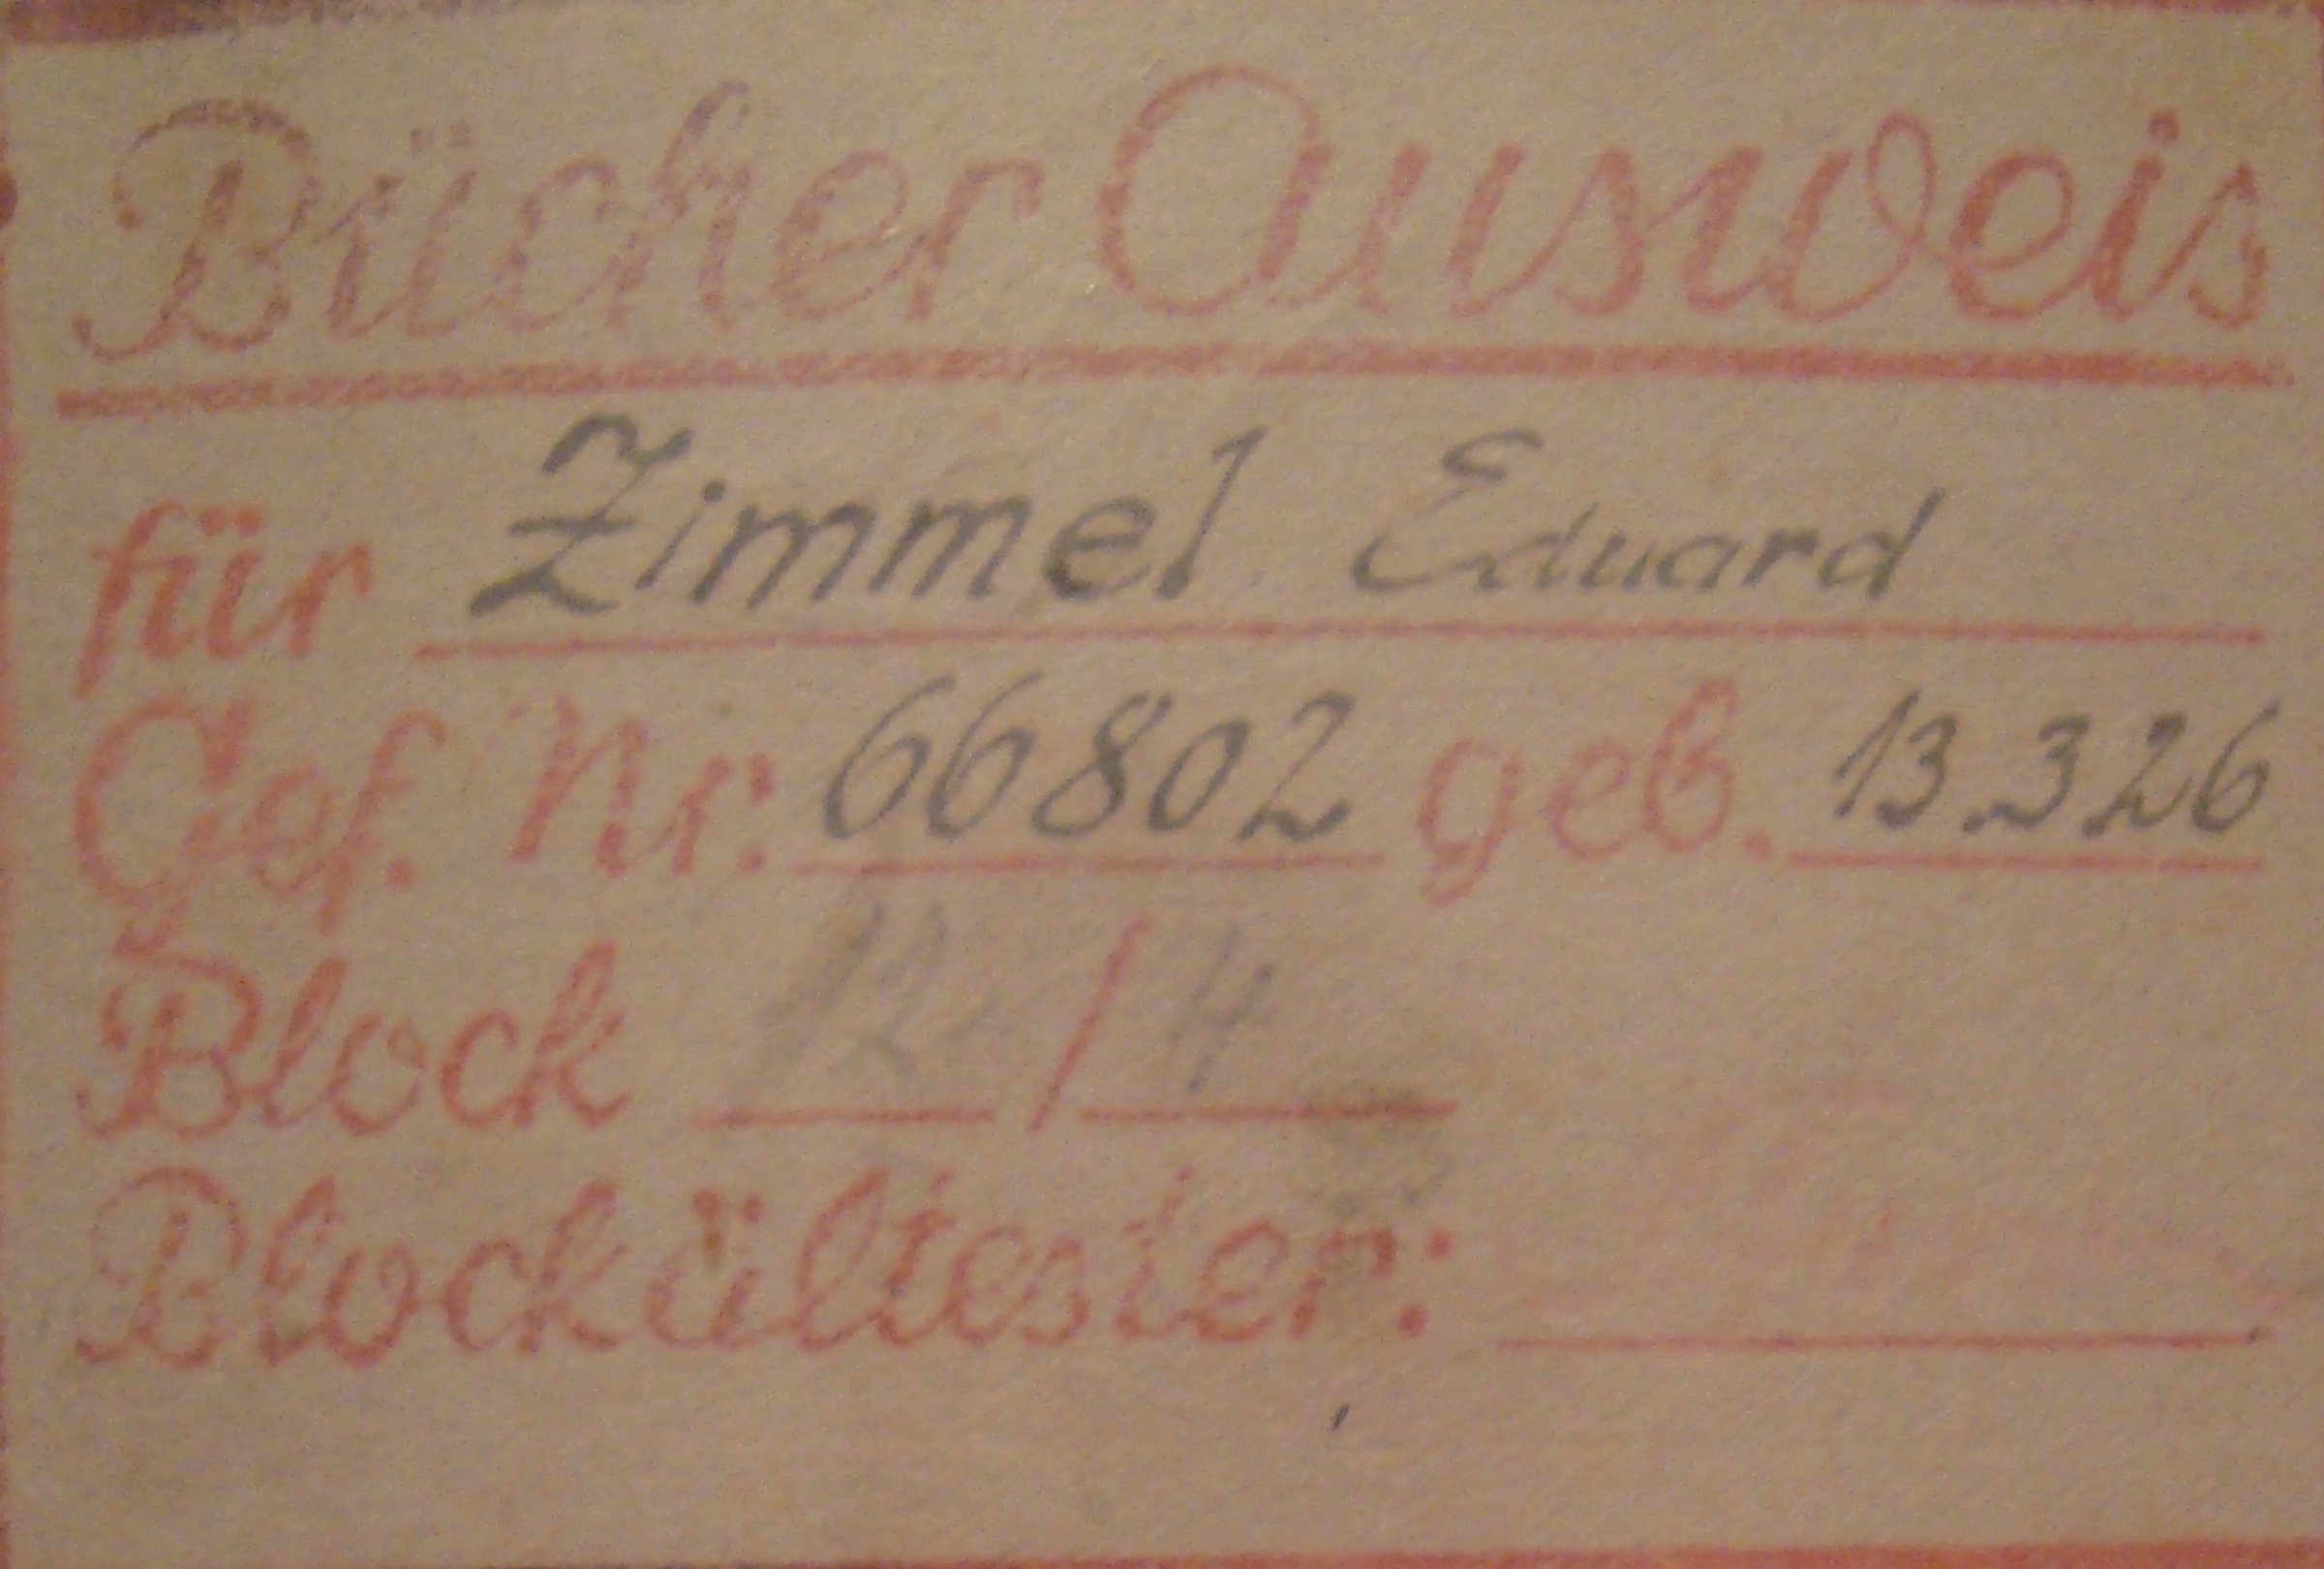 Bücher Ausweis
für Zimmel Eduard
Gef. Nr: 66802 geb. 13.3.26
Block 12 / 4
Blockältester: